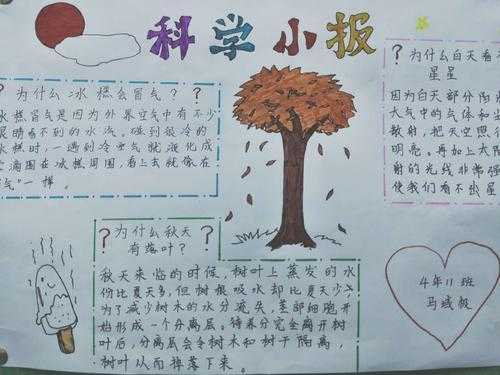 科学小报
? 为什么冰糕会冒气? ?
冰糕冒气是因为外界空气中有不少
眼睛看不到的水汽。碰到很冷的
冰糕时,一遇到冷空气就液化成
滴围在冰糕周围,看上去就像在
气"一样。
? 为什么白天看不
星星
因为白天部分阳
大气中的气体和
散射,把天空照
明亮。再加上太阳
射的光线非常强
使我们看不到星
? 为什么秋天 ?
有落叶?
秋天来临的时候,树叶上蒸发的水
份比夏天多,但树根吸水却比夏天少
为了减少树木的水分流失,茎部细胞开
始形成一个分离层。待养分完全离开树
叶后,分离层会令树木和树干隔离,
树叶从而掉落下来。
4年11班
马